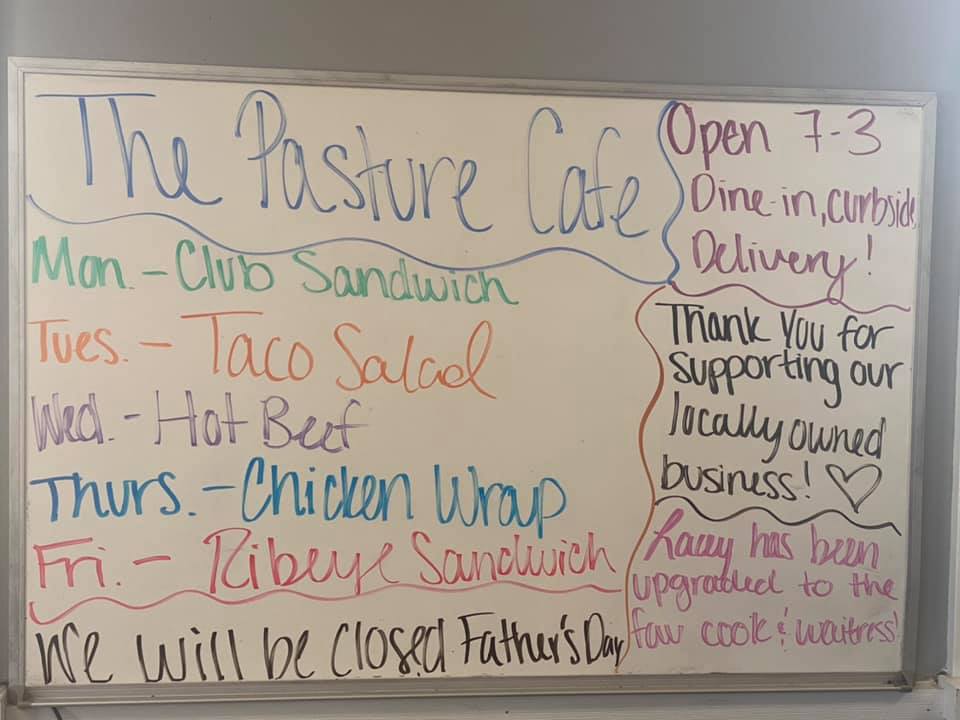 The Pasture Cafe
Mon. - Club Sandwich
Tues. - Taco Salad
Wed. - Hot Beef
Thurs. - Chicken Wrap
Fri. - Ribeye Sandwich
We will be closed Father's Day
Open 7-3
Dine-in, curbside,
Delivery!
Thank You for
supporting our
locally owned
business! ♡
Lacey has been
upgraded to the
fav cook & waitress!